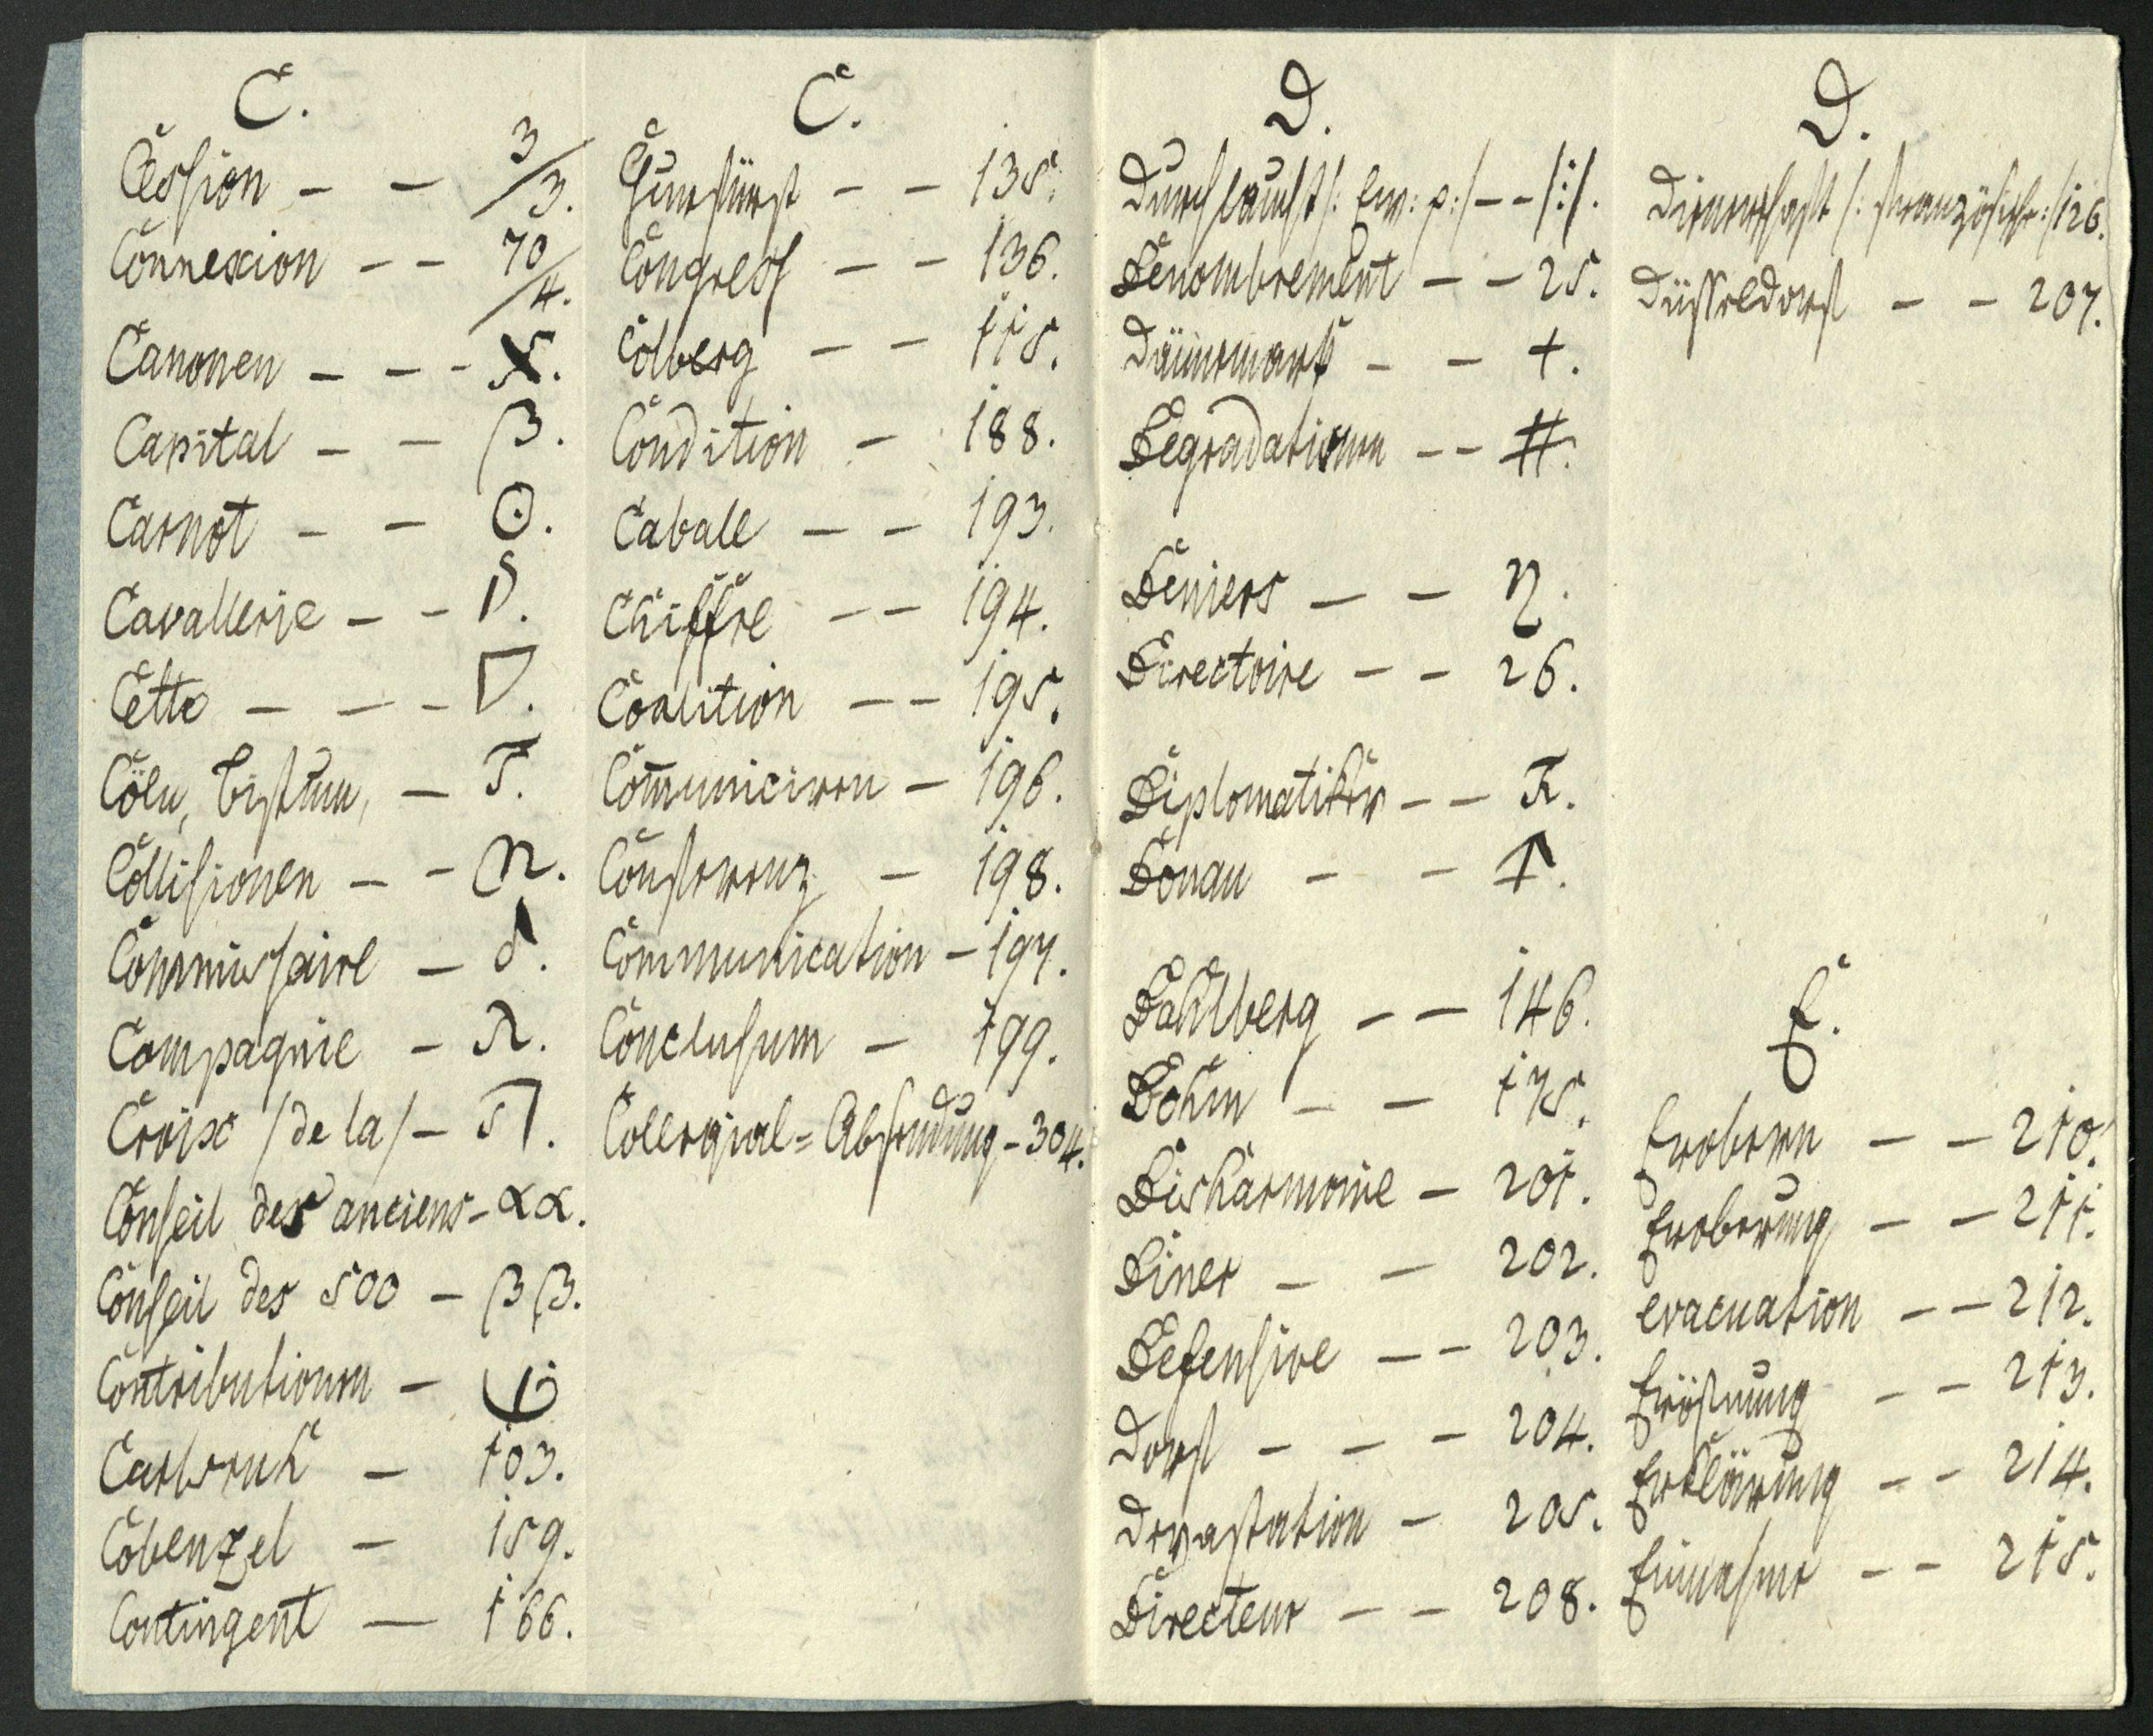 C.
Cession – – 3/3.
Connexion – – 70/4.
Canonen – – –
Capital – – β.
Carnot – – ⊙.
Cavallerie – –
Cetto – – – ▽.
Cöln, Bistum, –
Collisionen – –
Commissaire –
Compagnie –
Croix /de la/ –
Conseil des anciens – αα.
Conseil des 500 – ββ.
Contributionen –
Carlsruh – 103.
Cobenzel – 159.
Contingent – 166.
C.
Churfürst – – 135.
Congress – – 136.
Colberg – – 115.
Condition – 188.
Cabale – – 193.
Chiffre – – 194.
Coalition – – 195.
Com̅uniciren – 196.
Conferenz – 198.
Communication – 197.
Conclusum – 199.
Collegial=Absendung – 304.
D.
Durchlaucht /: Eur: p:/ – – /:/.
Dénombrement – – 25.
Dännemark – – +.
Degradationen – – #.
Deniers – – η.
Directoire – – 26.
Diplomatiker – –
Donau – – ↑.
Dahlberg – – 146.
Dohm – – 175.
Disharmonie – 201.
Diner – – 202.
Defensive – – 203.
Dorf – – – 204.
Devastation – 205.
Directeur – – 208.
D.
Dienerschaft /: französische :/ 126.
Düsseldorf – – 207.
E.
Erobern – – 210.
Eroberung – – 211.
evacuation – – 212.
Eröfnung – – 213.
Erklärung – – 214.
Einnahme – – 215.